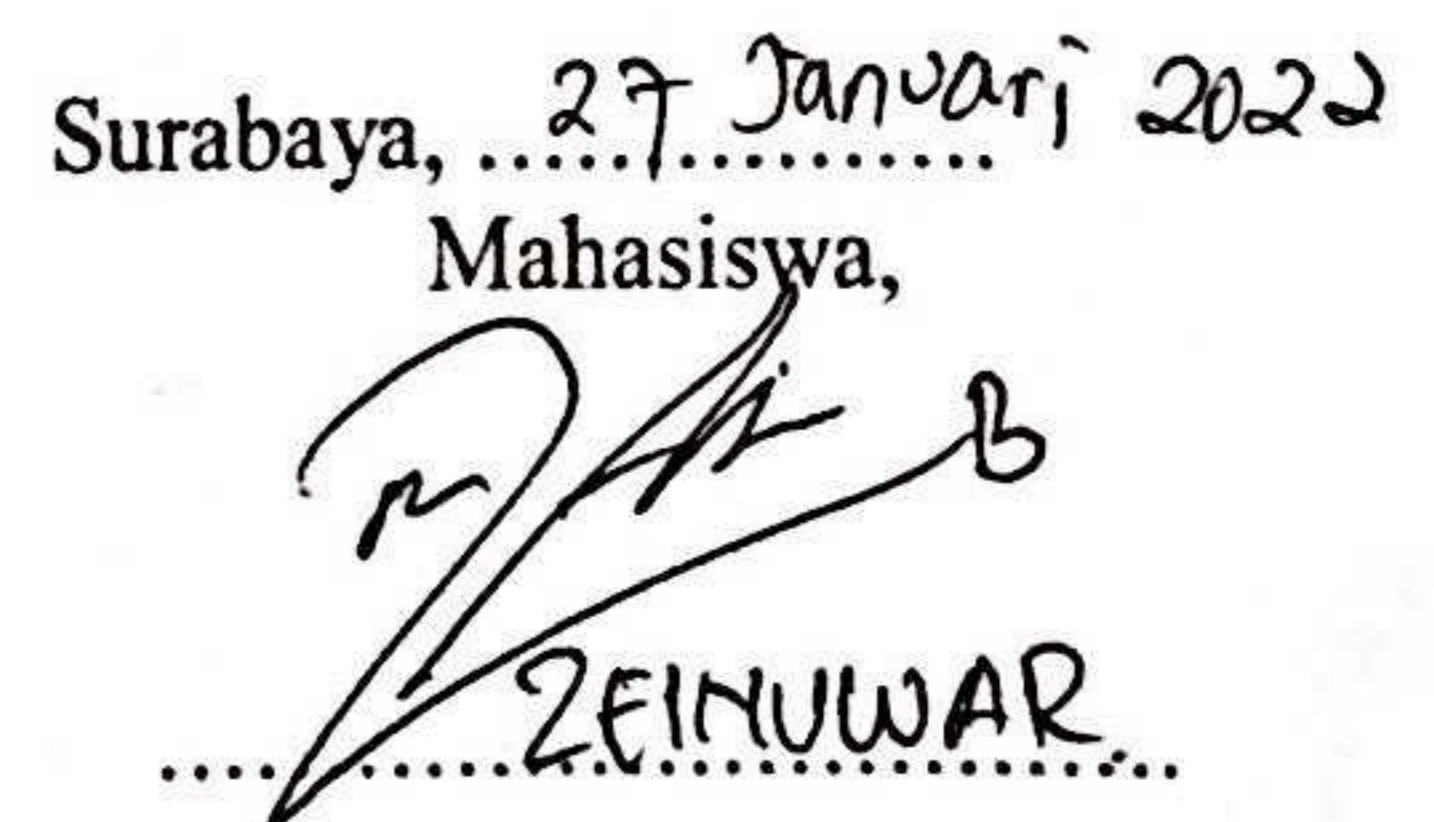 Surabaya, 27 Januari 2022
Mahasiswa,
ZEINUWAR